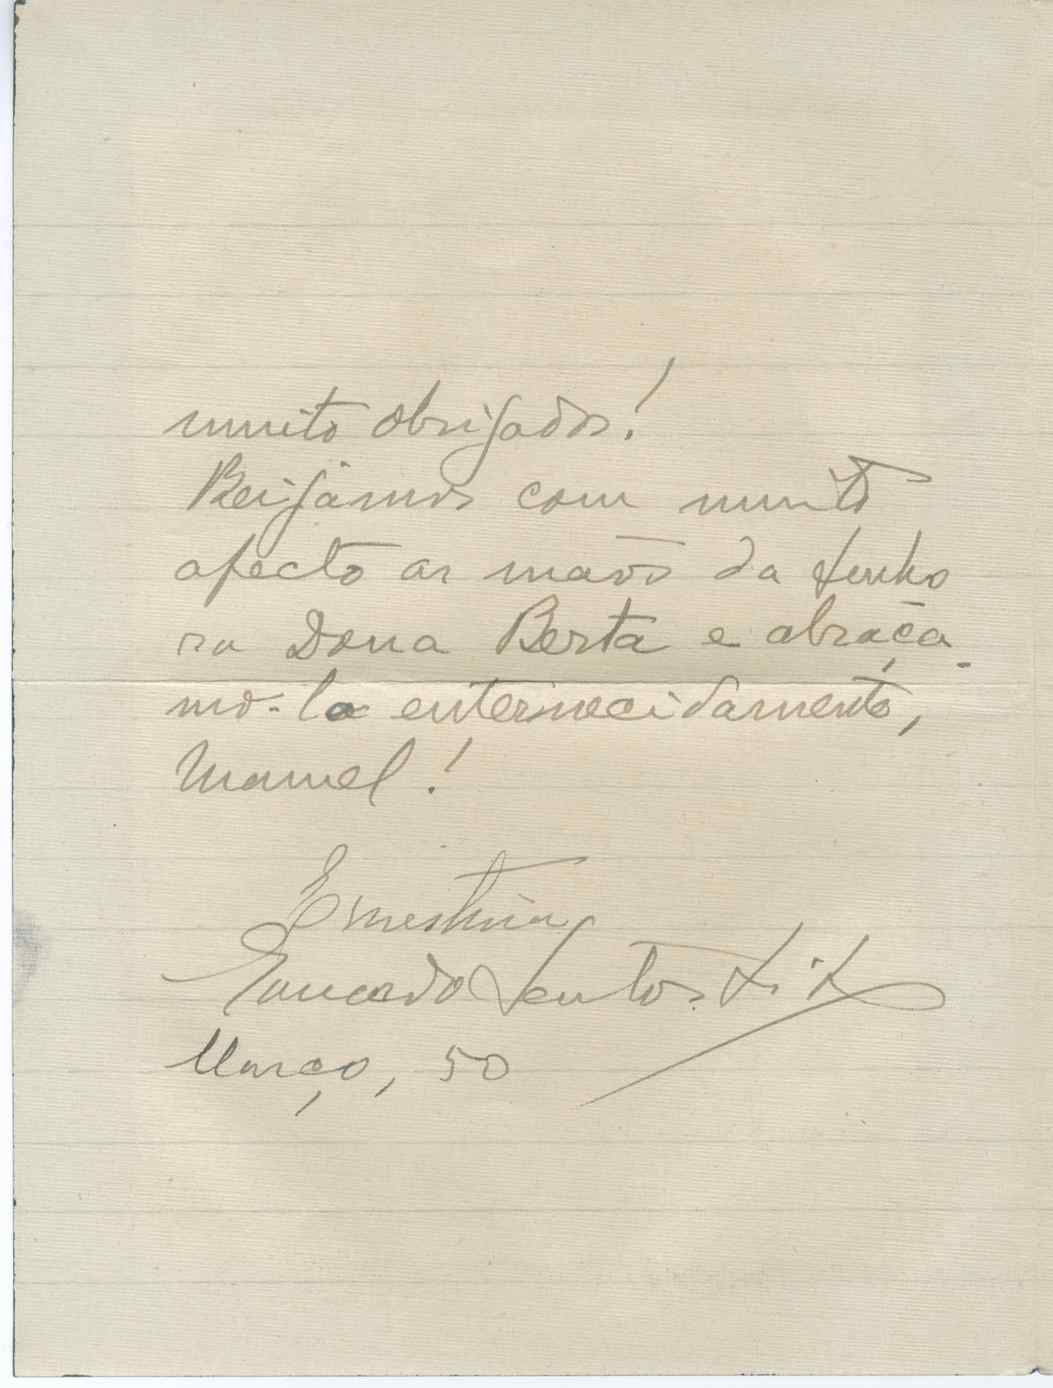 muito obrigados!
Beijâmos com muito
afecto as mãos da Senho
ra Dona Berta e abraça-
mo-lo enternecidamente,
Manuel!
Ernestina
Eduardo Santos
Março, 50